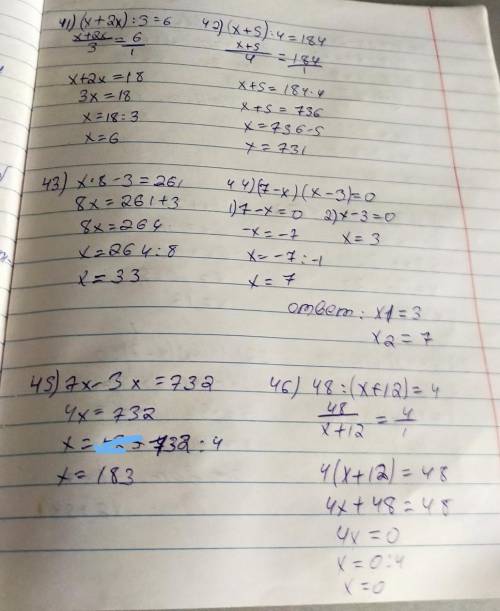 41) (x + 2x) : 3 = 6
x+2x/3 = 6/1
x+2x = 18
3x = 18
x = 18 : 3
x = 6
42) (x + 5) : 4 = 184
x+5/4 = 184/1
x+5 = 184 · 4
x+5 = 736
x = 736 - 5
x = 731
43) x · 8 - 3 = 261
8x = 261 + 3
8x = 264
x = 264 : 8
x = 33
44) (7 - x) (x - 3) = 0
1) 7 - x = 0 2) x - 3 = 0
-x = -7 x = 3
x = -7 : -1
x = 7
ответ: x1 = 3
x2 = 7
45) 7x - 3x = 732
4x = 732
x = 732 : 4
x = 183
46) 48 : (x+12) = 4
48/x+12 = 4/1
4(x+12) = 48
4x + 48 = 48
4x = 0
x = 0 : 4
x = 0